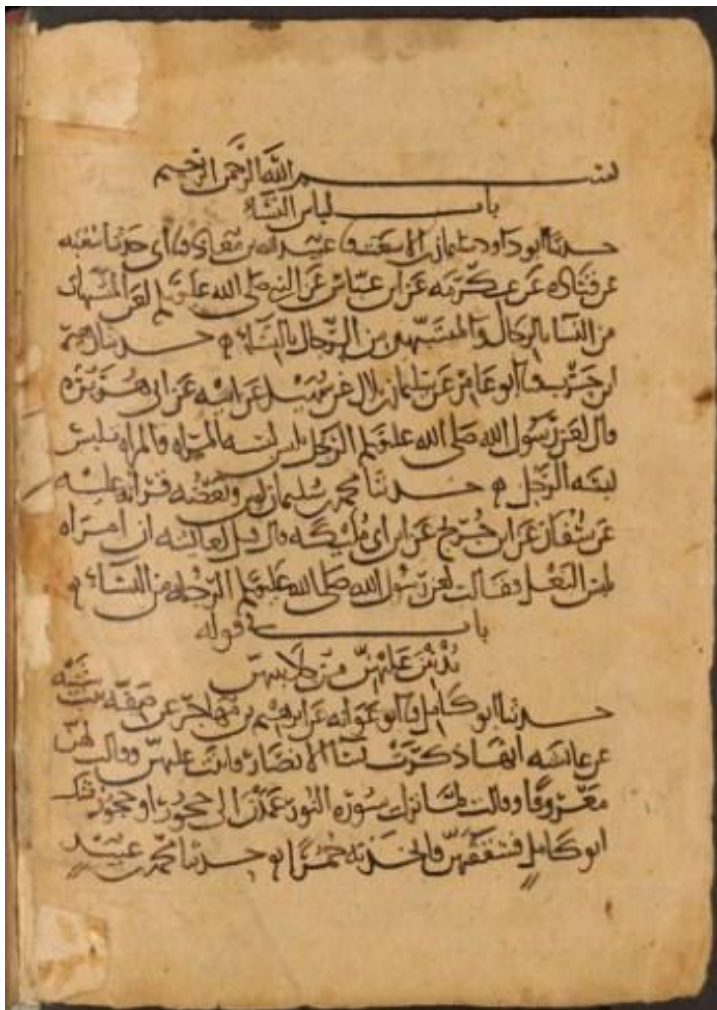 بسم الله الرحمن الرحيم
باب لباس النساء
حدثنا ابو داود سليمان بن الاشعث نا عبيد الله بن معاذ نا ابي حدثنا شعبة
عن قتادة عن عكرمة عن ابن عباس عن النبي صلى الله عليه وسلم لعن المتشبهات
من النسا بالرجال والمتشبهين من الرجال بالنساء ه حدثنا زهير
ابن حرب نا ابو عامر عن سليمان بن بلال عن سهيل عن ابيه عن ابي هريرة
قال لعن رسول الله صلى الله عليه وسلم الرجل يلبس لبسه المراه والمراه تلبس
لبسه الرجل ه حدثنا محمد بن سليمان لوين وبعضه قراة عليه
عن سفيان عن ابن جريج عن ابن ابي مليكة قال قيل لعائشة ان امراه
تلبس النعل فقالت لعن رسول الله صلى الله عليه وسلم الرجلة من النساء ه
باب في قوله
يدنين عليهن من جلابيبهن
حدثنا ابو كامل نا ابو عوانه عن ابرهيم بن مهاجر عن صفيه بنت شيبه
عن عائشه انها ذكرت نسا الانصار فاثنت عليهن وقالت لهن
معروفا وقالت لما نزلت سورة النور عمدن الى حجور او حجوز شك
ابو كامل فشققنهن فاتخذنه خمرا ه حدثنا محمد بن عبيد